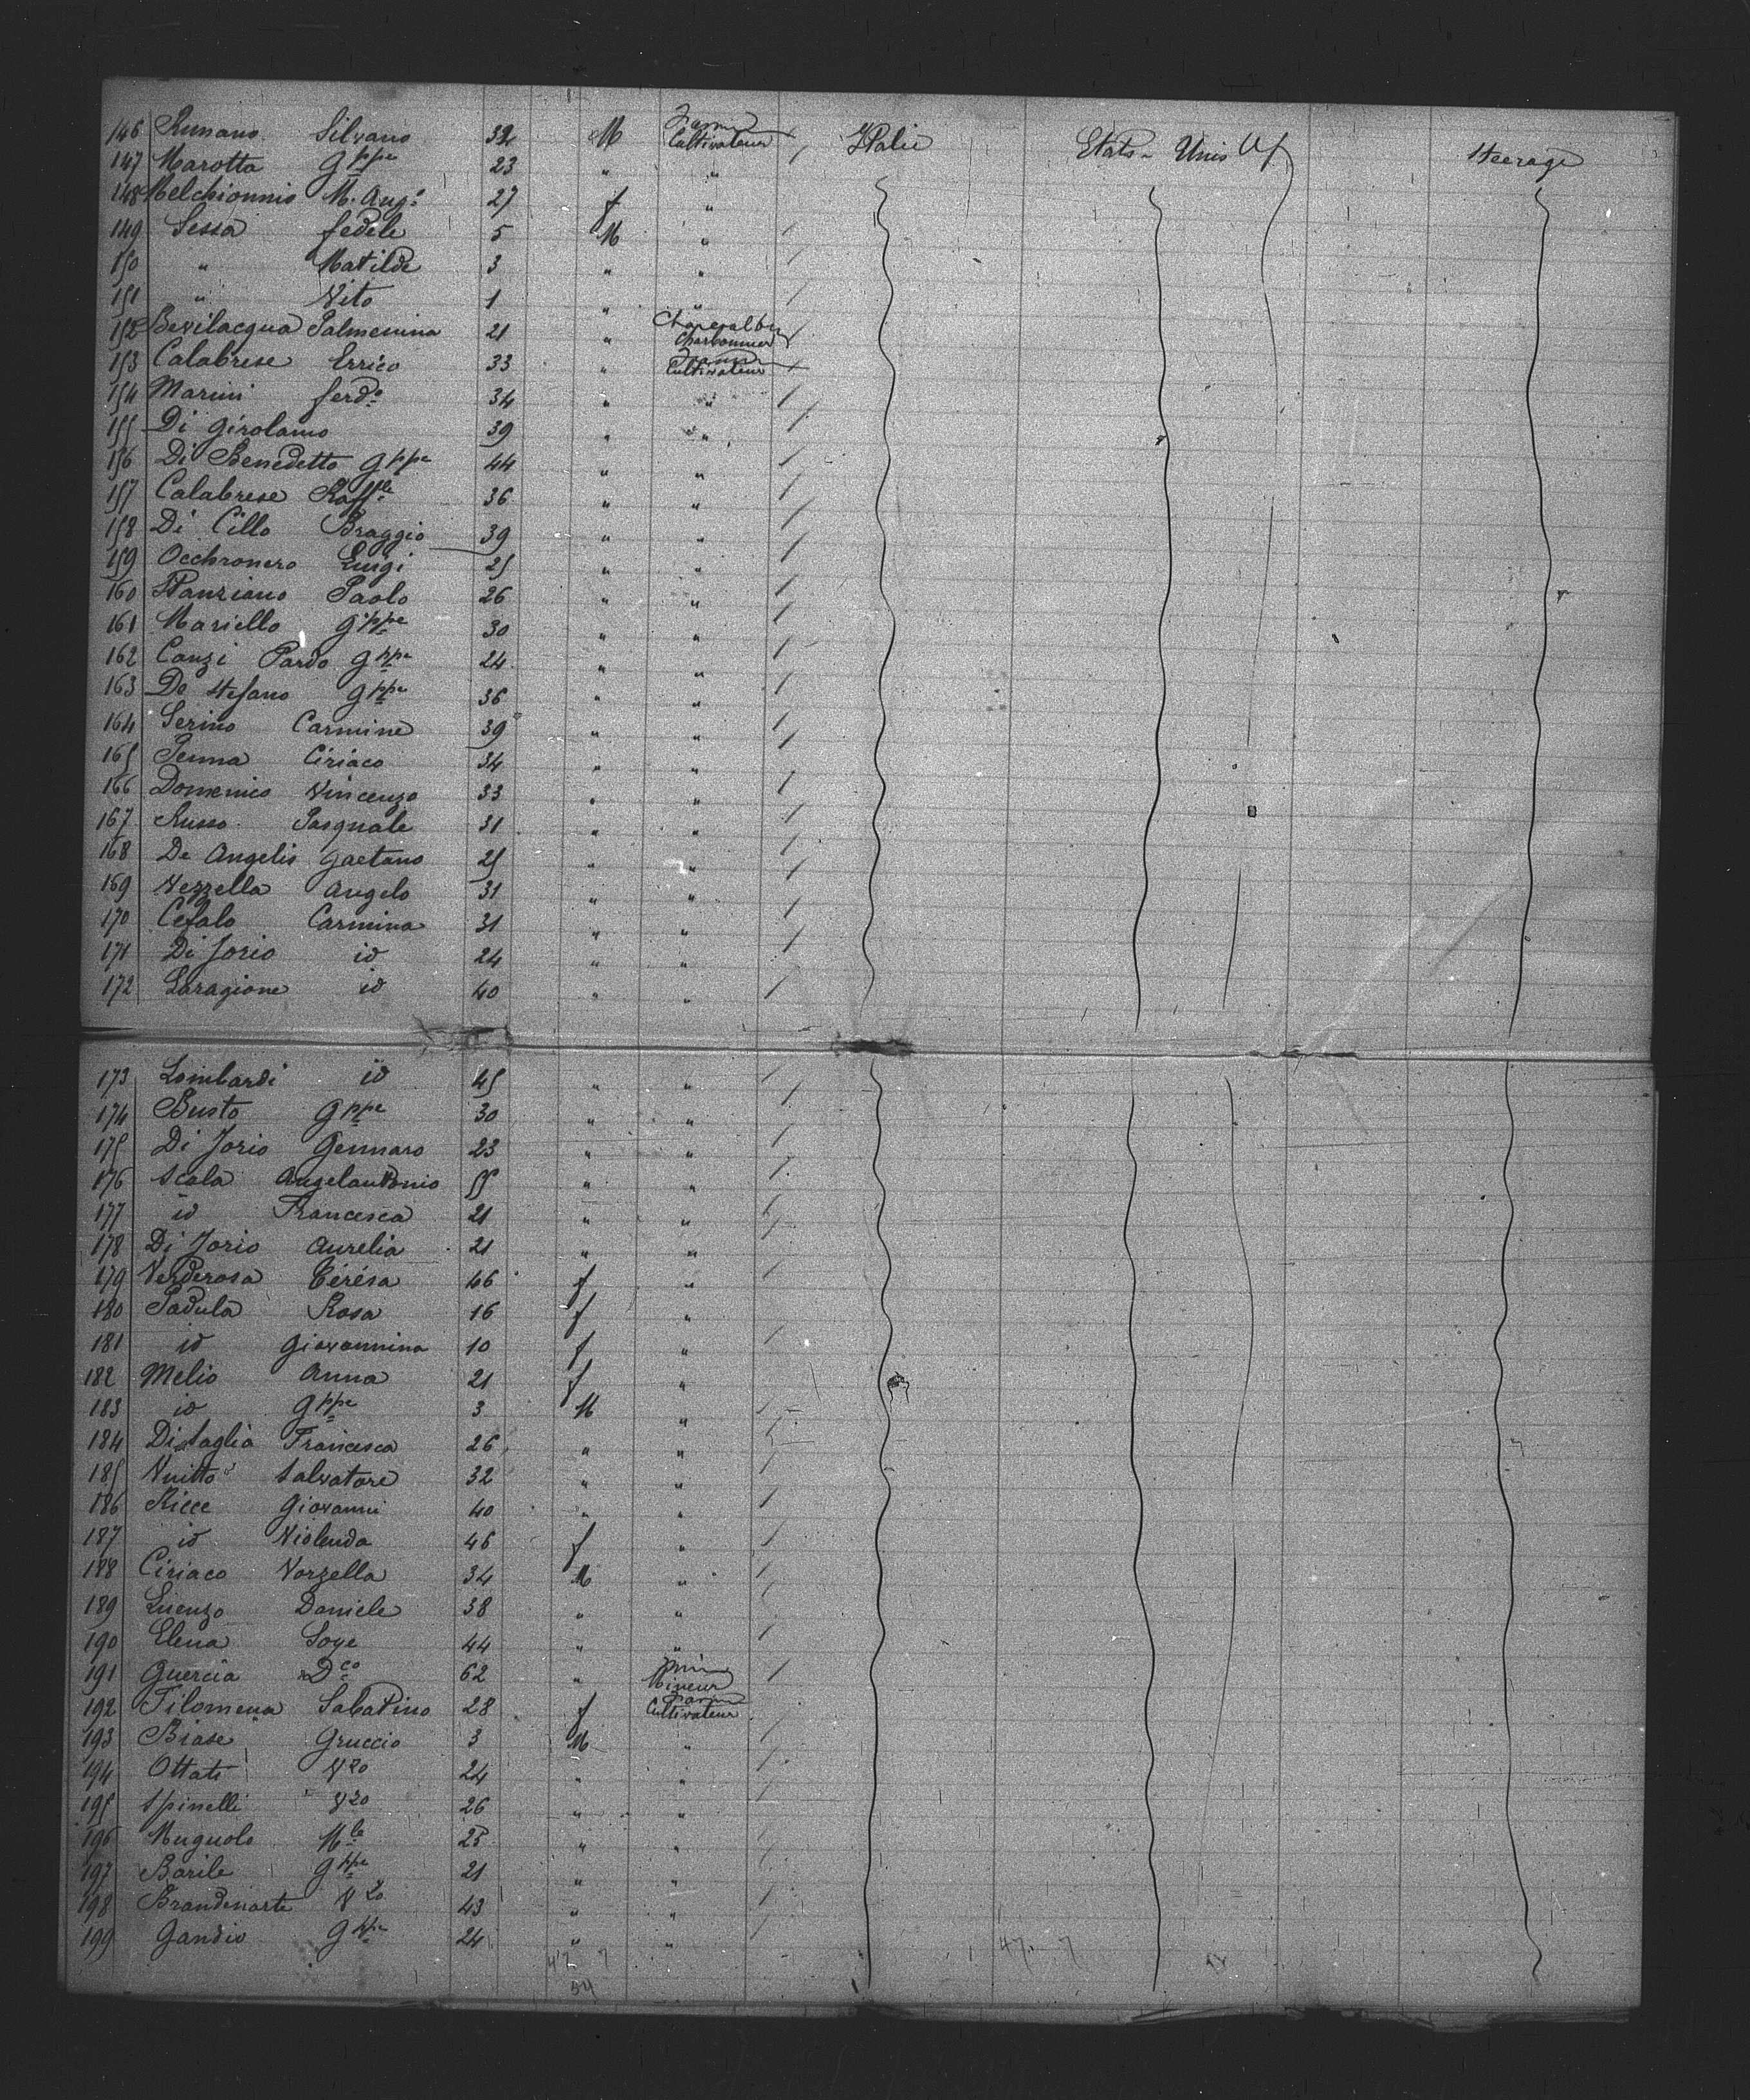 146 Rumano Silvano 32 M Farmer Cultivateur Italie Etats-Unis steerage
147 Marotta Gppe 23 " "
148 Melchionnis M. Ang.a 27 f "
149 Sessa fedele 5 M "
150 " Matilde 3 " "
151 " Vito 1 " "
152 Bevilacqua Palmenina 21 " Charbonnier
153 Calabrese Errico 33 " Farmer Cultivateur
154 Marini ferd.o 34 " "
155 Di Girolamo 39 " "
156 Di Benedetto Gppe 44 " "
157 Calabrese Raffle 36 " "
158 Di Cillo Braggio 39 " "
159 Occhronero Luigi 25 " "
160 Stanziano Paolo 26 " "
161 Mariello Gppe 30 " "
162 Canzi Pardo Gppe 24 " "
163 De Stefano Gppe 36 " "
164 Serino Carmine 39 " "
165 Penna Ciriaco 34 " "
166 Domenico Vincenzo 33 " "
167 Russo Pasquale 31 " "
168 De Angelis Gaetano 25 " "
169 Vezzella Angelo 31 " "
170 Cefalo Carmina 31 " "
171 Di Jorio id 24 " "
172 Laragione id 40 " "
173 Lombardi id 45 " "
174 Busto Gppe 30 " "
175 Di Jorio Gennaro 23 " "
176 Scala Angelantonio 55 " "
177 id Francesca 21 " "
178 Di Jorio Aurelia 21 " "
179 Verderosa Térésa 46 f "
180 Padula Rosa 16 f "
181 id Giovannina 10 f "
182 Melio Anna 21 f "
183 id Gppe 3 M "
184 Di Staglia Francesca 26 " "
185 Vuitto Salvatore 32 " "
186 Ricce Giovanni 40 " "
187 id Violenda 46 f "
188 Ciriaco Vorzella 34 M "
189 Luenzo Daniele 38 " "
190 Elena Soye 44 " "
191 Guercia Dco 62 "
192 Filomena Sabatino 28 f Farmer Cultivateur
193 Biase Gruccio 3 M "
194 Ottati Vzo 24 " "
195 Spinelli Vzo 26 " "
196 Mugnolo Mle 25 " "
197 Barile Gppe 21 " "
198 Brandenarte Vzo 43 " "
199 Gandio Gppe 24 " "
47 7 47 7
54